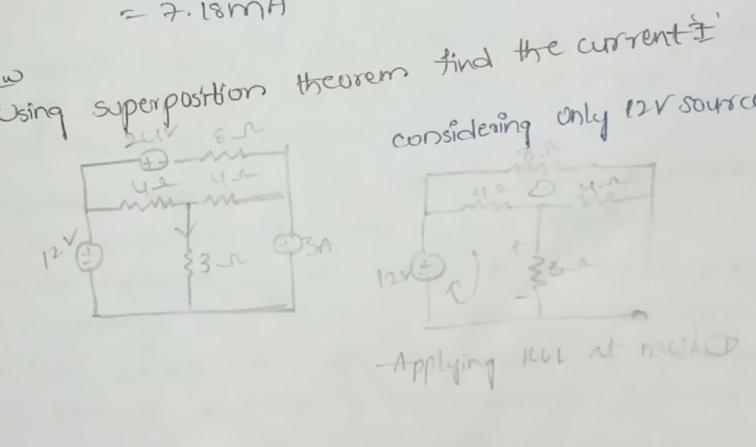 = 7.18mA
w
Using superposition theorem find the current 'I'
considering only 12V source
24V 8Ω
4Ω 4Ω
12V
3Ω
3A
8Ω
4Ω 4Ω
12V
3Ω
Applying KVL at mesh ①